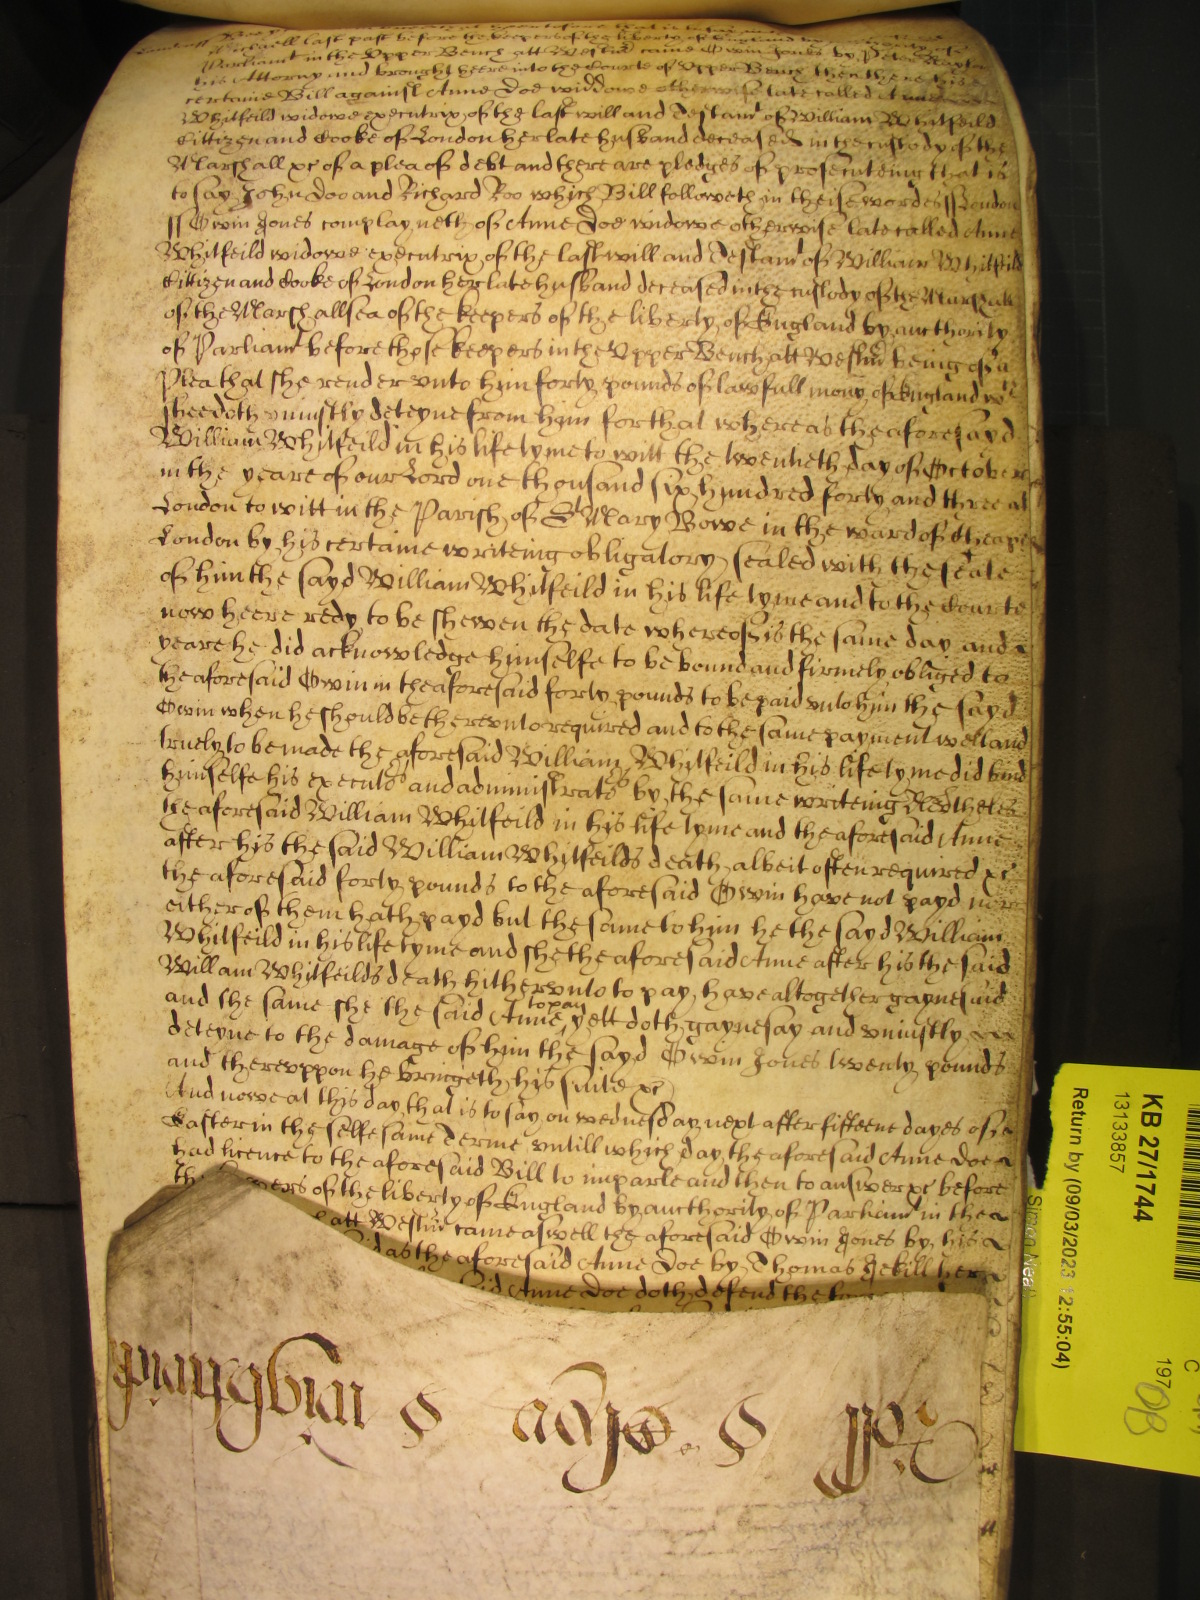 Michaell last past before the keepers of the liberty of England by
Parliamt in the Upper Bench att Westmr came Owin Jones by
his Attorny and brought heere into the Courte of Upper Bench then there his
certaine Bill against Anne Doe widdowe otherwise late called Anne
Whitfeild widowe executrix of the last will and Testamt of William Whitfeild
Cittizen and Cooke of London her late husband deceased in the custody of the
Marshall xc of a plea of debt and there are pledges of prosecuteing that is
to say John Doo and Richard Roo which Bill followeth in theise wordes ss London
ss Owin Jones complayneth of Anne Doe widowe otherwise late called Anne
Whitfeild widowe executrix of the last will and Testamt of William Whitfeild
Cittizen and Cooke of London her late husband deceased in the custody of the Marshall
of the Marshallsea of the keepers of the liberty of England by aucthority
of Parliamt before those keepers in the Upper Bench att Westmr being of a
Plea that she render unto him forty pounds of lawfull mony of England wch
shee doth uniustly deteyne from him for that whereas the aforesayd
William Whitfeild in his life tyme to witt the twentieth day of October
in the yeare of our Lord one thousand six hundred forty and three at
London to witt in the Parish of St Mary Bowe in the ward of Cheape
London by his certaine writeing obligatory sealed with the seale
of him the sayd William Whitfeild in his life tyme and to the Courte
now heere redy to be shewen the date whereof is the same day and
yeare he did acknowledge himselfe to be bound and firmely obliged to
the aforesaid Owin in the aforesaid forty pounds to be paid unto him the sayd
Owin when he should be thereunto required and to the same payment well and
truely to be made the aforesaid William Whitfeild in his life tyme did bind
himselfe his executrs and administratrs by the same writeing Nevertheles
the aforesaid William Whitfeild in his life tyme and the aforesaid Anne
after his the said William Whitfeilds death albeit often required xc
the aforesaid forty pounds to the aforesaid Owin have not payd nor
either of them hath payd but the same to him he the sayd William
Whitfeild in his life tyme and she the aforesaid Anne after his the said
William Whitfeilds death hitherunto to pay have altogether gaynesaid
and the same she the said Anne to pay yett doth gaynesay and uniustly
deteyne to the damage of him the sayd Owin Jones twenty pounds
and thereuppon he bringeth his suite xc
And nowe at this day that is to say on wednesday next after fifteene dayes of
Easter in the selfe same Terme untill which day the aforesaid Anne Doe
had licence to the aforesaid Bill to imparle and then to answer xc before
the keepers of the liberty of England by aucthority of Parliamt in the
att Westmr came aswell the aforesaid Owin Jones by his
said as the aforesaid Anne Doe by Thomas Jekill her
said Anne Doe doth defend the
KB 27/1744
13133857
Return by (09/03/2023 12:55:04)